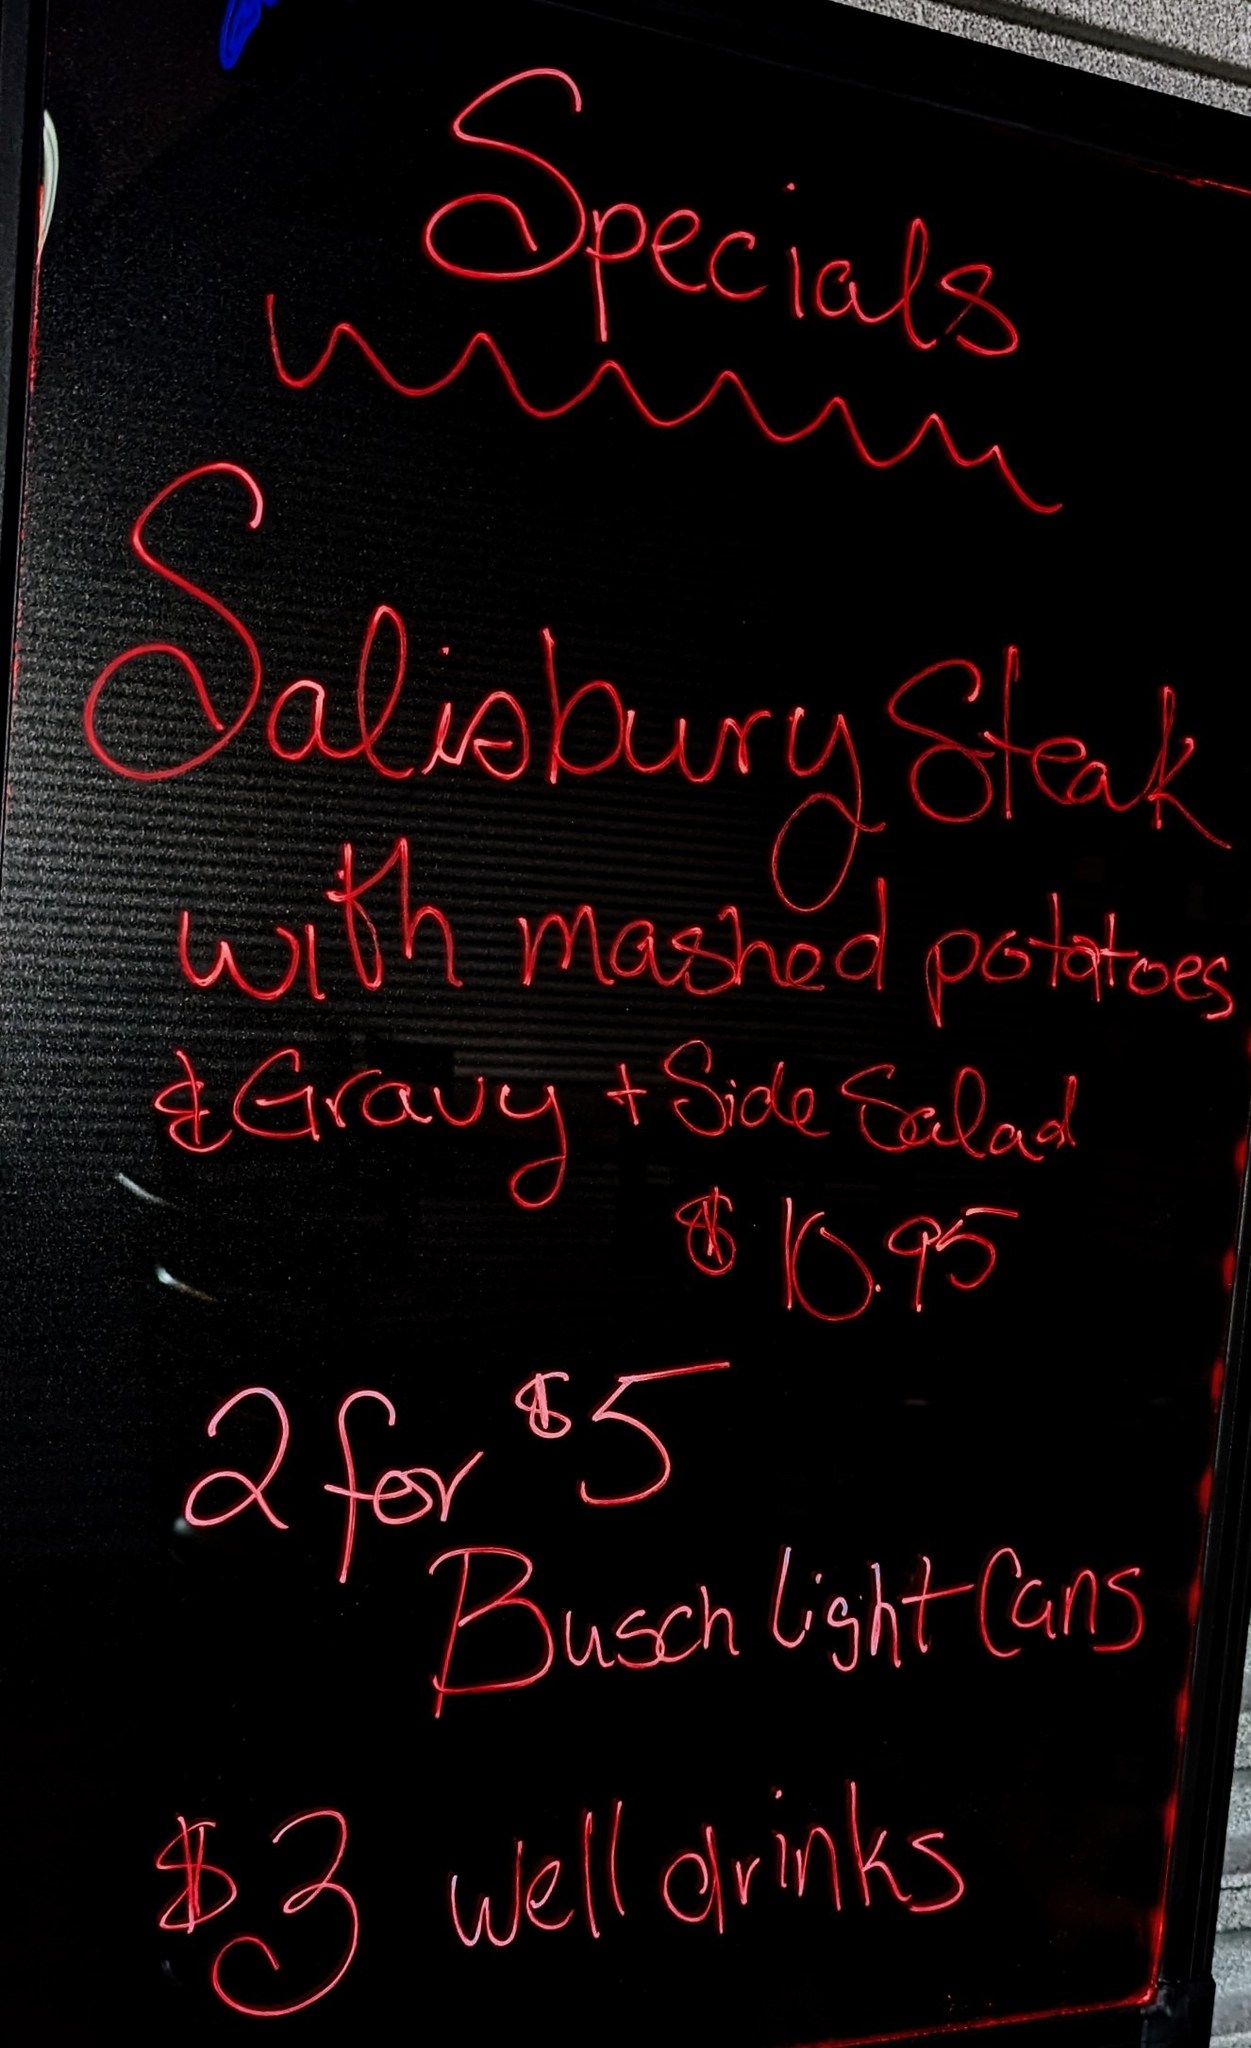 Specials
Salisbury Steak
with mashed potatoes
& Gravy + Side Salad
$ 10.95
2 for $5
Busch Light Cans
$3 well drinks